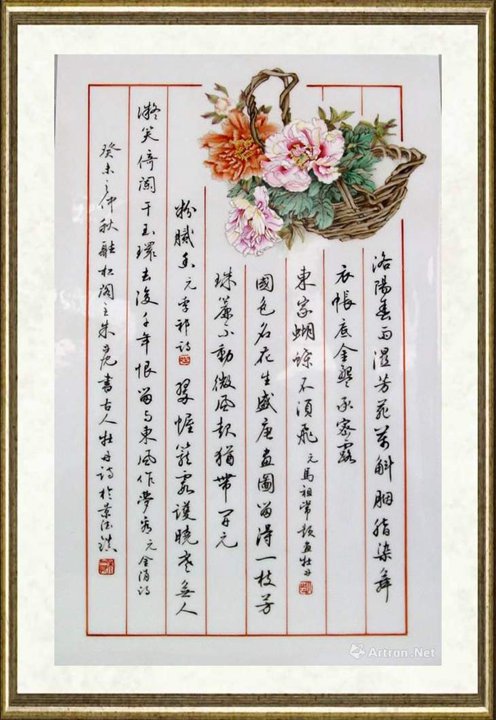 洛陽春雨湿芳菲萬斛胭脂染舞
衣帳底金盤承密露
東家蝴蝶不須飛 元馬祖常題画牡丹
國色名花生盛唐画圖留得一枝芳
珠簾不動微風起猶帶開元
粉膩香 元李祁詩 翠幄籠霞護曉寒無人
凝笑倚闌干玉環去後千年恨留与東風作夢看 元金涓詩
癸未之仲秋聽松閣主朱書古人牡丹詩於景德鎮
Artron.Net